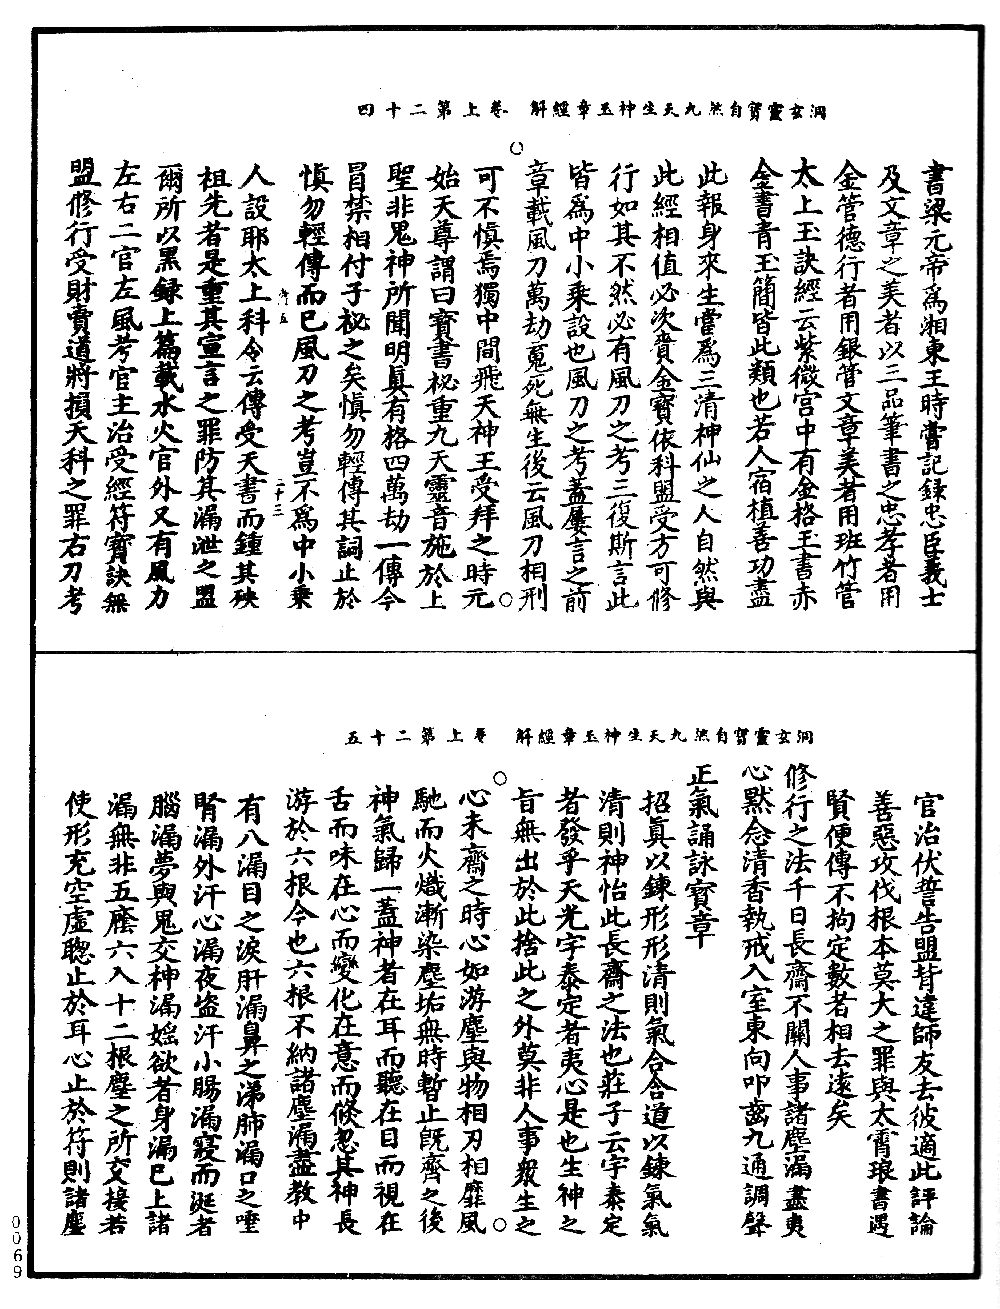 洞玄靈寶自然九天生神玉章經解　卷上第二十四
書梁元帝爲湘東王時嘗記録忠臣義士
及文章之美者以三品筆書之忠孝者用
金管德行者用銀管文章美者用班竹管
太上玉訣經云紫微宮中有金格玉書赤
金書青玉簡皆此類也若人宿植善功盡
此報身來生當爲三清神仙之人自然與
此經相值必次賫金寶依科盟受方可修
行如其不然必有風刀之考三復斯言此
皆爲中小乘設也風刀之考蓋屢言之前
章載風刀萬劫冤死無生後云風刀相刑
可不慎焉獨中間飛天神王受拜之時元
始天尊謂曰寶書祕重九天靈音施於上
聖非鬼神所聞明真有格四萬劫一傳今
冒禁相付子祕之矣慎勿輕傳其詞止於
慎勿輕傳而已風刀之考豈不爲中小乘
二十三
人設耶太上科令云傳受天書而鍾其殃
祖先者是重其宣言之罪防其漏泄之盟
爾所以黑録上篇載水火官外又有風力
左右二官左風考官主治受經符寶訣無
盟修行受財賣道將損天科之罪右刀考
洞玄靈寶自然九天生神玉章經解　卷上第二十五
官治伏誓告盟背違師友去彼適此評論
善惡攻伐根本莫大之罪與太霄琅書遇
賢便傳不拘定數者相去遠矣
修行之法千日長齋不關人事諸塵漏盡夷
心默念清香執戒入室東向叩齒九通調聲
正氣誦詠寶章
招真以鍊形形清則氣合合道以鍊氣氣
清則神怡此長齋之法也莊子云宇泰定
者發乎天光宇泰定者夷心是也生神之
旨無出於此捨此之外莫非人事衆生之
心未齋之時心如游塵與物相刃相靡風
馳而火熾漸染塵垢無時暫止既齊之後
神氣歸一蓋神者在耳而聽在目而視在
舌而味在心而變化在意而倏忽其神長
游於六根今也六根不納諸塵漏盡教中
有八漏目之淚肝漏鼻之涕肺漏口之唾
腎漏外汗心漏夜盜汗小腸漏寢而涎者
腦漏夢與鬼交神漏婬欲者身漏已上諸
漏無非五廕六入十二根塵之所交接若
使形充空虛聰止於耳心止於符則諸塵
0069